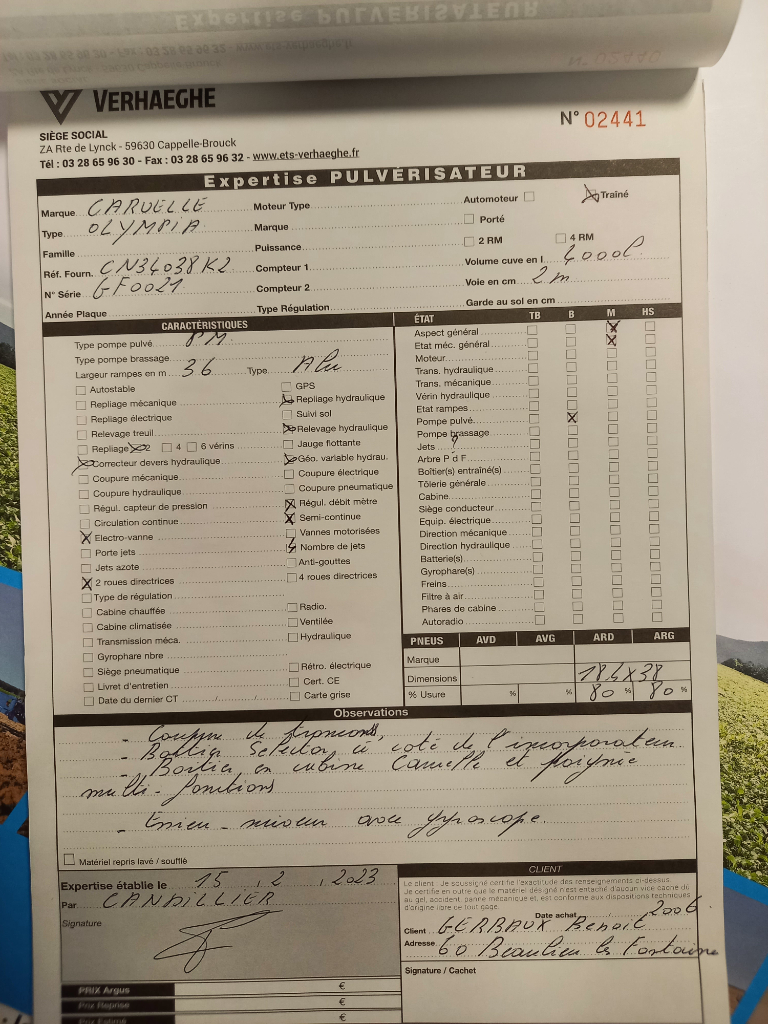 Expertise PULVERISATEUR
VERHAEGHE
SIÈGE SOCIAL
ZA Rte de Lynck - 59630 Cappelle-Brouck
Tél : 03 28 65 96 30 - Fax : 03 28 65 96 32 - www.ets-verhaeghe.fr
N° 02441
Expertise PULVÉRISATEUR
Marque CARUELLE Moteur Type Automoteur Traîné
Type OLYMPIA Marque Porté
Famille Puissance 2 RM 4 RM
Réf. Fourn. CN34038K2 Compteur 1 Volume cuve en l 4000l
N° Série GF0021 Compteur 2 Voie en cm 2m
Année Plaque Type Régulation Garde au sol en cm
CARACTÉRISTIQUES
Type pompe pulvé PM
Type pompe brassage
Largeur rampes en m 36 Type Alu
Autostable GPS
Repliage mécanique Repliage hydraulique
Repliage électrique Suivi sol
Relevage treuil Relevage hydraulique
Repliage 2 4 6 vérins Jauge flottante
Correcteur devers hydraulique Géo. variable hydrau.
Coupure mécanique Coupure électrique
Coupure hydraulique Coupure pneumatique
Régul. capteur de pression Régul. débit mètre
Circulation continue Semi-continue
Electro-vanne Vannes motorisées
Porte jets Nombre de jets
Jets azote Anti-gouttes
2 roues directrices 4 roues directrices
Type de régulation
Cabine chauffée Radio.
Cabine climatisée Ventilée
Transmission méca. Hydraulique
Gyrophare nbre
Siège pneumatique Rétro. électrique
Livret d'entretien Cert. CE
Date du dernier CT / / Carte grise
ÉTAT TB B M HS
Aspect général
Etat méc. général
Moteur
Trans. hydraulique
Trans. mécanique
Vérin hydraulique
Etat rampes
Pompe pulvé
Pompe brassage
Jets
Arbre P d F
Boîtier(s) entraîné(s)
Tôlerie générale
Cabine
Siège conducteur
Equip. électrique
Direction mécanique
Direction hydraulique
Batterie(s)
Gyrophare(s)
Freins
Filtre à air
Phares de cabine
Autoradio
PNEUS AVD AVG ARD ARG
Marque
Dimensions 18.4 X 38
% Usure % % 80 % 80 %
Observations
- Coupure de tronçons,
- Boitier Selector à coté de l'incorporateur
- Boitier en cabine Caruelle et poignée
multi-fonctions
- Essieu suiveur avec gyroscope
Matériel repris lavé / soufflé
Expertise établie le 15 . 2 . 2023
Par CANDILLIER
Signature
PRIX Argus €
Prix Reprise €
Prix Estimé €
CLIENT
Le client : Je soussigné certifie l'exactitude des renseignements ci-dessus.
Je certifie en outre que le matériel désigné n'est entaché d'aucun vice caché dû
au gel, accident, panne mécanique et, est conforme aux dispositions techniques
d'origine lors de tout gage.
Date achat 2006
Client GERBAUX Benoit
Adresse 60 Beaulieu les Fontaines
Signature / Cachet